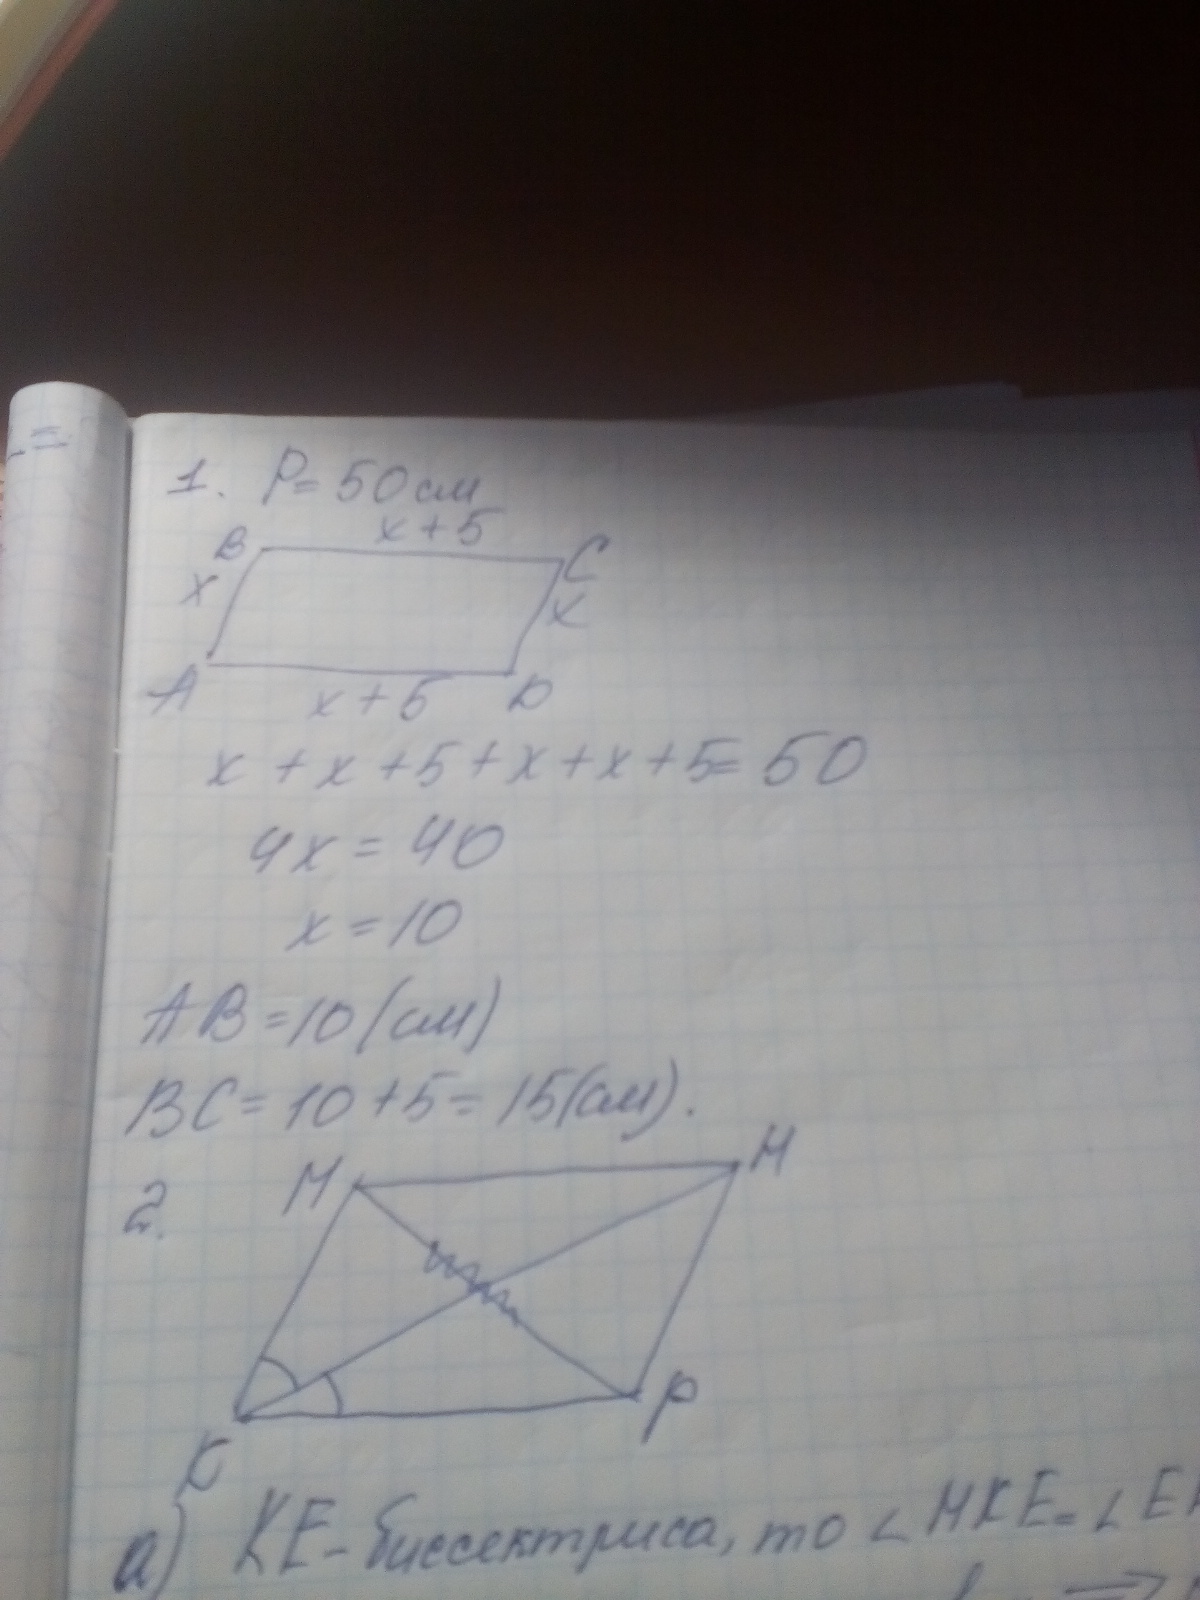 1. P = 50 см
x + 5
B
C
x
x
A
x + 5
D
x + x + 5 + x + x + 5 = 50
4x = 40
x = 10
AB = 10 (см)
BC = 10 + 5 = 15 (см).
2.
M
H
K
P
а) KE - биссектриса, то ∠ MKE = ∠ E